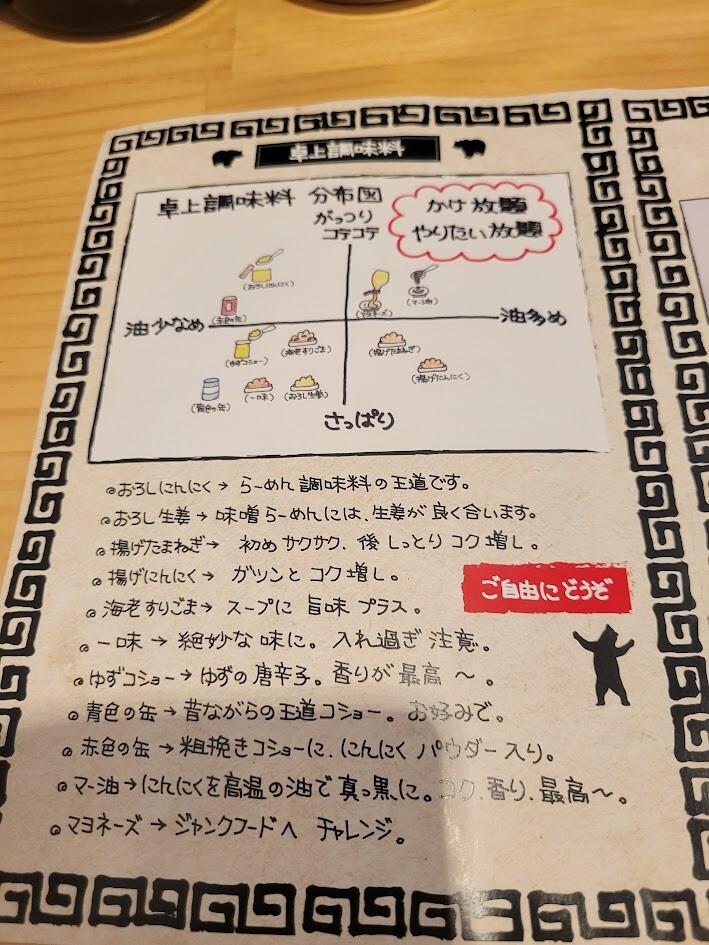 卓上調味料
卓上調味料 分布図
かけ放題
やりたい放題
がっつり
コテコテ
(おろしにんにく)
(マー油)
(赤色の缶)
(マヨネーズ)
油少なめ
油多め
(ゆずコショー)
(海老すりごま)
(揚げたまねぎ)
(揚げにんにく)
(青色の缶)
(一味)
(おろし生姜)
さっぱり
おろしにんにく→ らーめん調味料の王道です。
おろし生姜→ 味噌らーめんには、生姜が良く合います。
揚げたまねぎ→ 初めサクサク、後しっとりコク増し。
揚げにんにく→ ガツンとコク増し。
ご自由にどうぞ
海老すりごま→ スープに旨味プラス。
一味→ 絶妙な味に。入れ過ぎ注意。
ゆずコショー→ ゆずの唐辛子。香りが最高〜。
青色の缶→ 昔ながらの王道コショー。お好みで。
赤色の缶→ 粗挽きコショーに、にんにくパウダー入り。
マー油→ にんにくを高温の油で真っ黒に。コク、香り、最高〜。
マヨネーズ→ ジャンクフードへ チャレンジ。